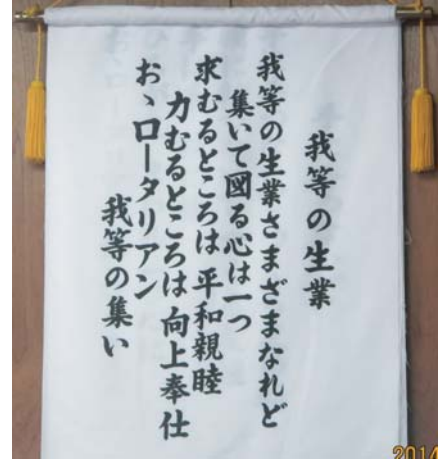 我等の生業
我等の生業さまざまなれど
集いて図る心は一つ
求むるところは平和親睦
力むるところは向上奉仕
おゝロータリアン
我等の集い
2014